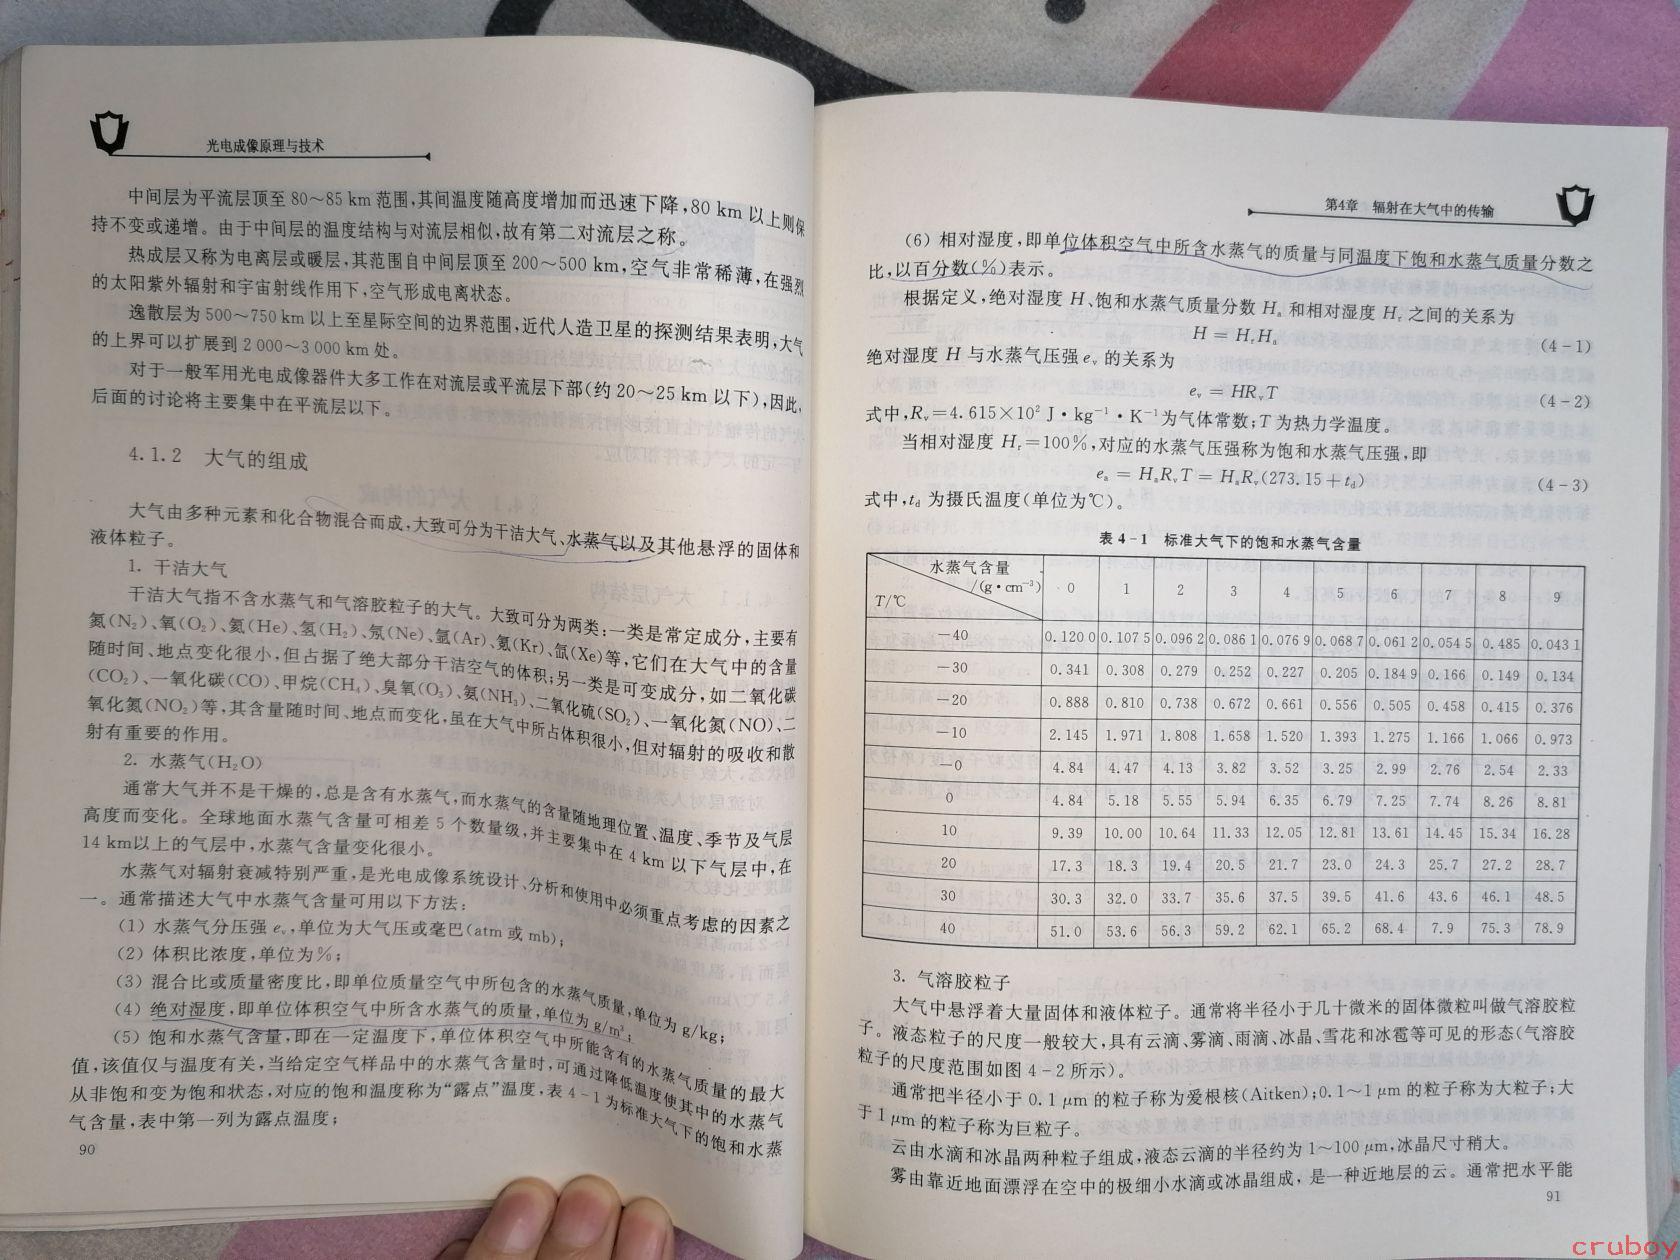 光电成像原理与技术
中间层为平流层顶至 80～85 km 范围,其间温度随高度增加而迅速下降,80 km 以上则保
持不变或递增。由于中间层的温度结构与对流层相似,故有第二对流层之称。
热成层又称为电离层或暖层,其范围自中间层顶至 200～500 km,空气非常稀薄,在强烈
的太阳紫外辐射和宇宙射线作用下,空气形成电离状态。
逸散层为 500～750 km 以上至星际空间的边界范围,近代人造卫星的探测结果表明,大气
的上界可以扩展到 2 000～3 000 km 处。
对于一般军用光电成像器件大多工作在对流层或平流层下部(约 20～25 km 以下),因此,
后面的讨论将主要集中在平流层以下。
4.1.2 大气的组成
大气由多种元素和化合物混合而成,大致可分为干洁大气、水蒸气以及其他悬浮的固体和
液体粒子。
1. 干洁大气
干洁大气指不含水蒸气和气溶胶粒子的大气。大致可分为两类:一类是常定成分,主要有
氮(N₂)、氧(O₂)、氦(He)、氢(H₂)、氖(Ne)、氩(Ar)、氪(Kr)、氙(Xe)等,它们在大气中的含量
随时间、地点变化很小,但占据了绝大部分干洁空气的体积;另一类是可变成分,如二氧化碳
(CO₂)、一氧化碳(CO)、甲烷(CH₄)、臭氧(O₃)、氨(NH₃)、二氧化硫(SO₂)、一氧化氮(NO)、二
氧化氮(NO₂)等,其含量随时间、地点而变化,虽在大气中所占体积很小,但对辐射的吸收和散
射有重要的作用。
2. 水蒸气(H₂O)
通常大气并不是干燥的,总是含有水蒸气,而水蒸气的含量随地理位置、温度、季节及气层
高度而变化。全球地面水蒸气含量可相差 5 个数量级,并主要集中在 4 km 以下气层中,在
14 km以上的气层中,水蒸气含量变化很小。
水蒸气对辐射衰减特别严重,是光电成像系统设计、分析和使用中必须重点考虑的因素之
一。通常描述大气中水蒸气含量可用以下方法:
(1) 水蒸气分压强 eᵥ,单位为大气压或毫巴(atm 或 mb);
(2) 体积比浓度,单位为%;
(3) 混合比或质量密度比,即单位质量空气中所包含的水蒸气质量,单位为 g/kg;
(4) 绝对湿度,即单位体积空气中所含水蒸气的质量,单位为 g/m³;
(5) 饱和水蒸气含量,即在一定温度下,单位体积空气中所能含有的水蒸气质量的最大
值,该值仅与温度有关,当给定空气样品中的水蒸气含量时,可通过降低温度使其中的水蒸气
从非饱和变为饱和状态,对应的饱和温度称为“露点”温度,表 4-1为标准大气下的饱和水蒸
气含量,表中第一列为露点温度;
90
第4章 辐射在大气中的传输
(6) 相对湿度,即单位体积空气中所含水蒸气的质量与同温度下饱和水蒸气质量分数之
比,以百分数(%)表示。
根据定义,绝对湿度 H、饱和水蒸气质量分数 Hₐ 和相对湿度 Hᵣ 之间的关系为
H = HᵣHₐ (4-1)
绝对湿度 H 与水蒸气压强 eᵥ 的关系为
eᵥ = HRᵥT (4-2)
式中,Rᵥ=4.615×10² J·kg⁻¹·K⁻¹为气体常数;T 为热力学温度。
当相对湿度 Hᵣ=100%,对应的水蒸气压强称为饱和水蒸气压强,即
eₐ = HₐRᵥT = HₐRᵥ(273.15+t_d) (4-3)
式中,t_d 为摄氏温度(单位为℃)。
表 4-1 标准大气下的饱和水蒸气含量
水蒸气含量/(g·cm⁻³) T/℃ 0 1 2 3 4 5 6 7 8 9
−40 0.120 0 0.107 5 0.096 2 0.086 1 0.076 9 0.068 7 0.061 2 0.054 5 0.485 0.043 1
−30 0.341 0.308 0.279 0.252 0.227 0.205 0.184 9 0.166 0.149 0.134
−20 0.888 0.810 0.738 0.672 0.661 0.556 0.505 0.458 0.415 0.376
−10 2.145 1.971 1.808 1.658 1.520 1.393 1.275 1.166 1.066 0.973
−0 4.84 4.47 4.13 3.82 3.52 3.25 2.99 2.76 2.54 2.33
0 4.84 5.18 5.55 5.94 6.35 6.79 7.25 7.74 8.26 8.81
10 9.39 10.00 10.64 11.33 12.05 12.81 13.61 14.45 15.34 16.28
20 17.3 18.3 19.4 20.5 21.7 23.0 24.3 25.7 27.2 28.7
30 30.3 32.0 33.7 35.6 37.5 39.5 41.6 43.6 46.1 48.5
40 51.0 53.6 56.3 59.2 62.1 65.2 68.4 7.9 75.3 78.9
3. 气溶胶粒子
大气中悬浮着大量固体和液体粒子。通常将半径小于几十微米的固体微粒叫做气溶胶粒
子。液态粒子的尺度一般较大,具有云滴、雾滴、雨滴、冰晶、雪花和冰雹等可见的形态(气溶胶
粒子的尺度范围如图 4-2 所示)。
通常把半径小于 0.1 μm 的粒子称为爱根核(Aitken);0.1～1 μm 的粒子称为大粒子;大
于 1 μm 的粒子称为巨粒子。
云由水滴和冰晶两种粒子组成,液态云滴的半径约为 1～100 μm,冰晶尺寸稍大。
雾由靠近地面漂浮在空中的极细小水滴或冰晶组成,是一种近地层的云。通常把水平能
91
cruboy